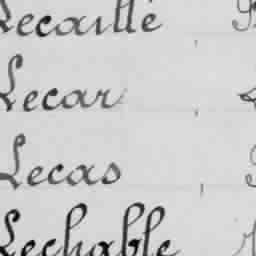 Lecaillé
Lecar
Lecas
Lechable